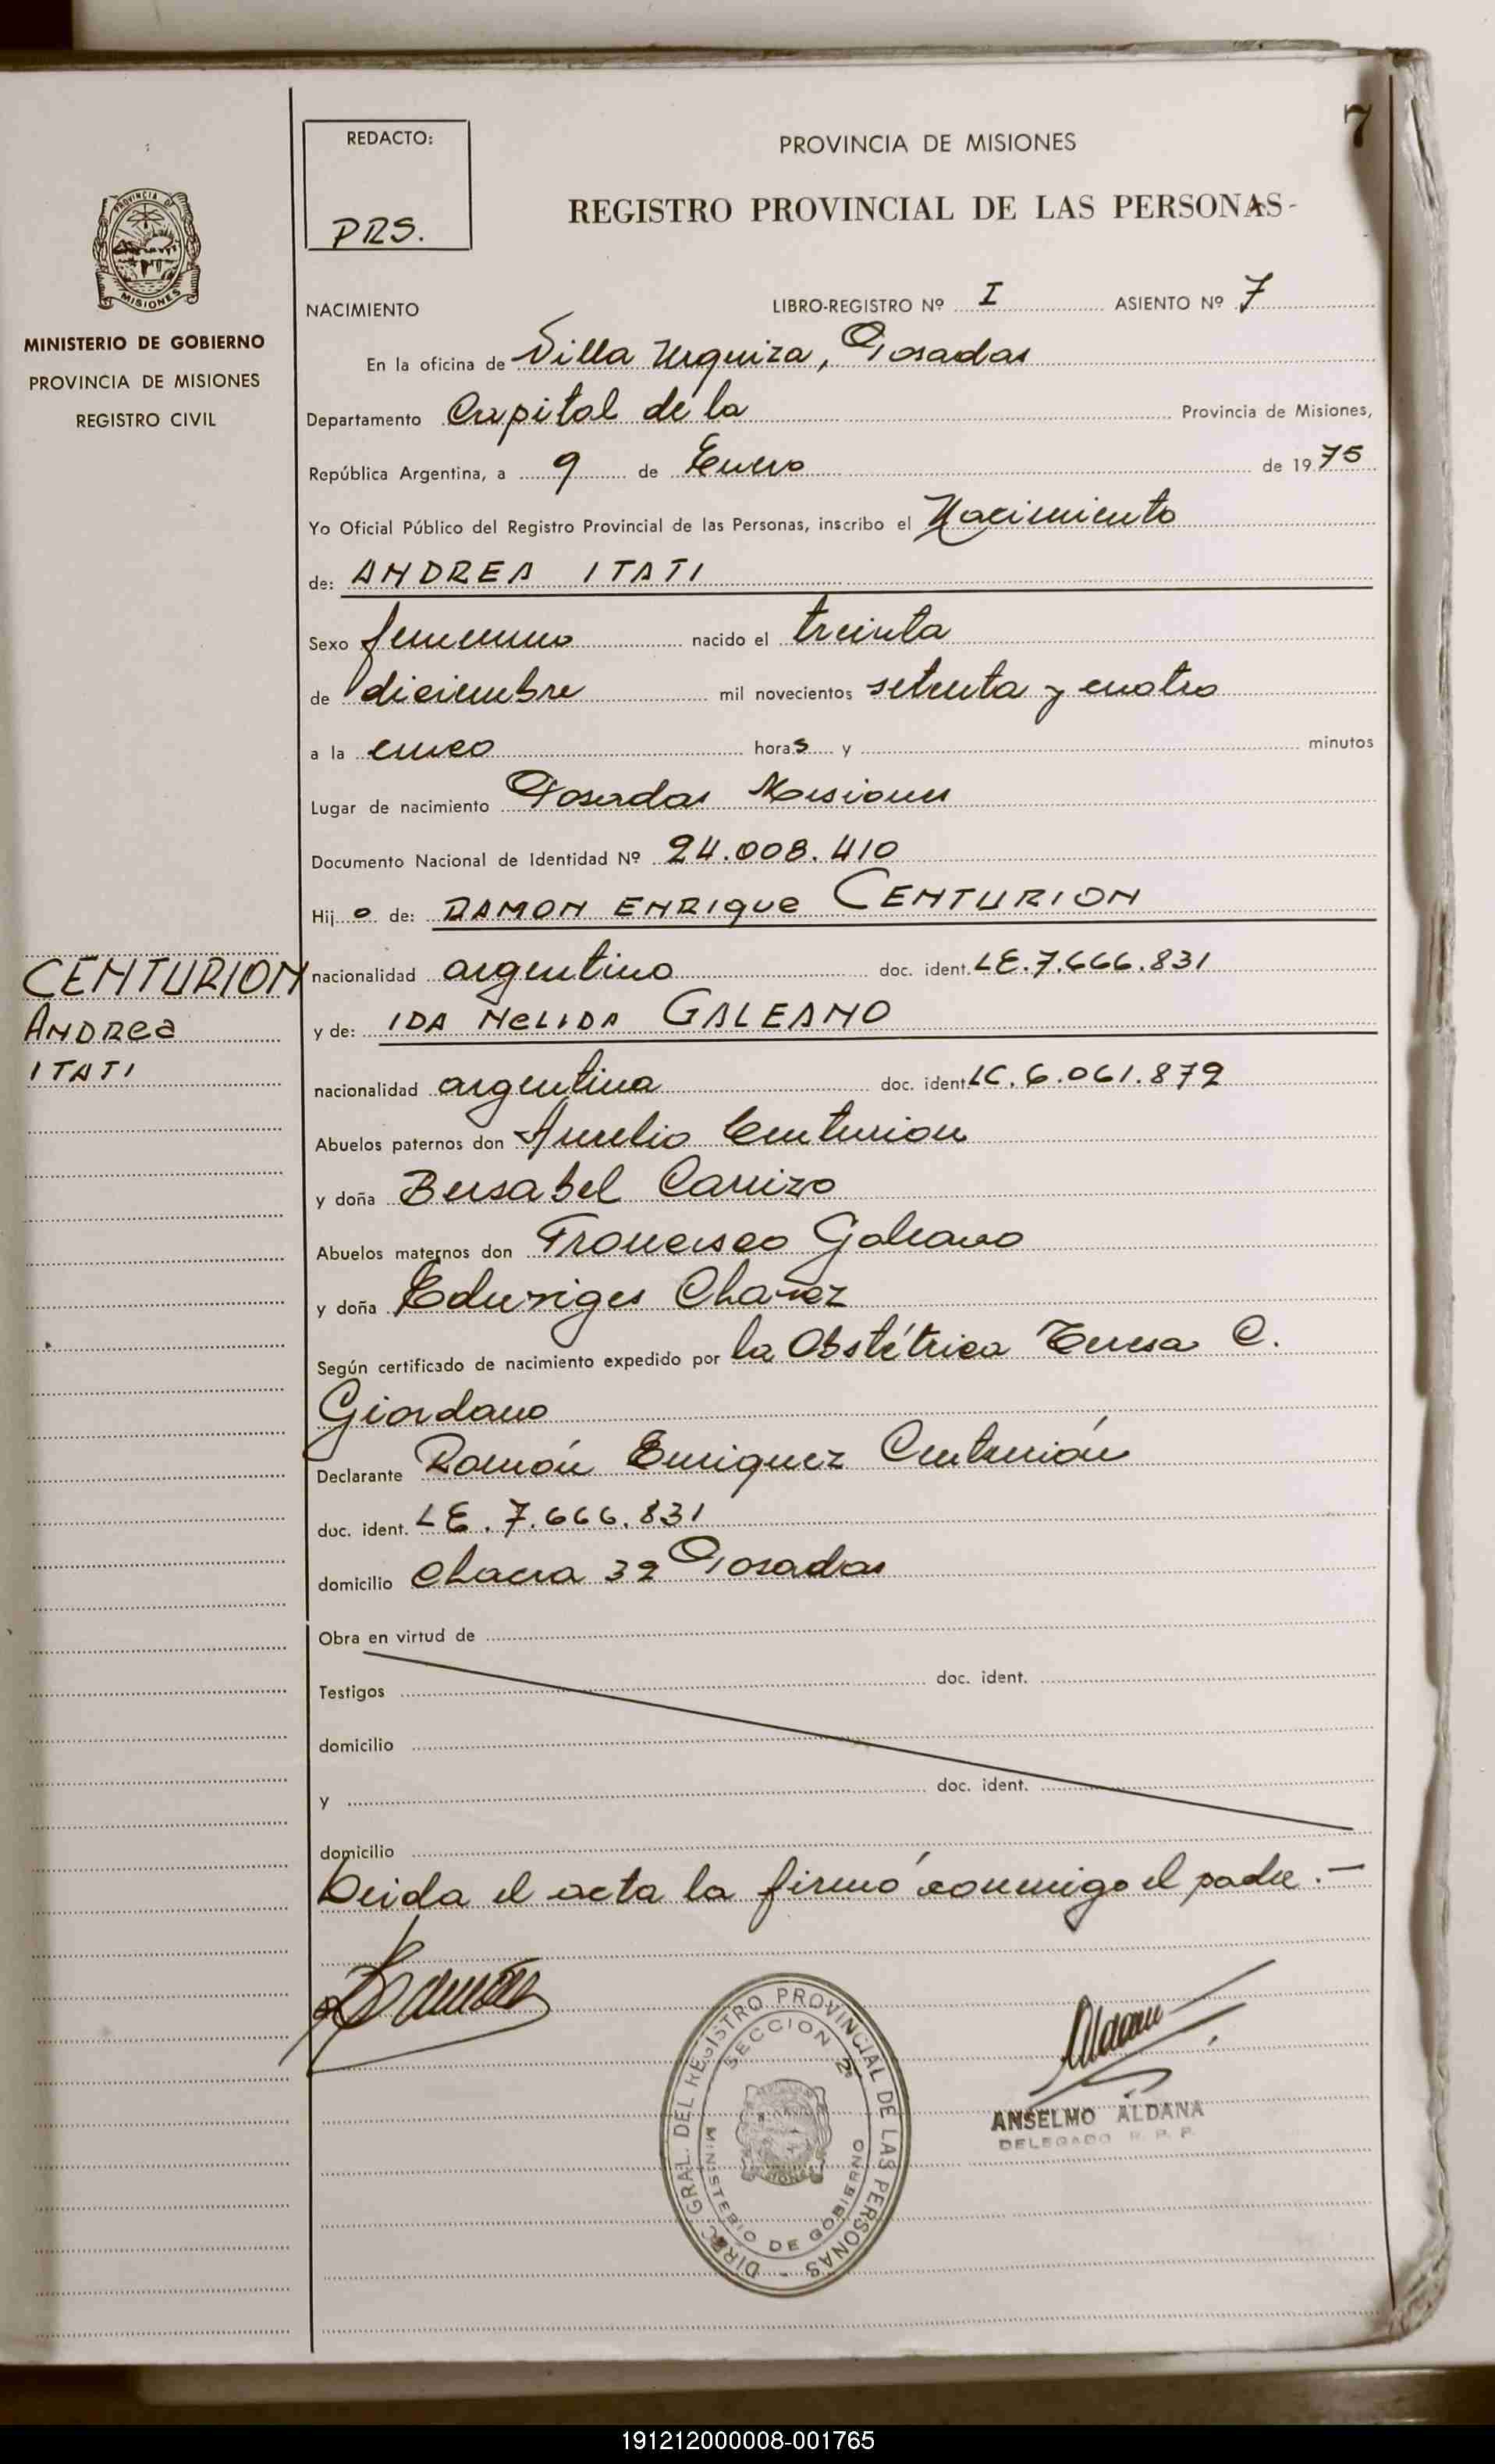 7
REDACTO:
PRS.
PROVINCIA DE MISIONES
REGISTRO PROVINCIAL DE LAS PERSONAS-
PROVINCIA DE
MISIONES
MINISTERIO DE GOBIERNO
PROVINCIA DE MISIONES
REGISTRO CIVIL
NACIMIENTO LIBRO-REGISTRO Nº I ASIENTO Nº 7
En la oficina de Villa Urquiza, Posadas
Departamento Capital de la Provincia de Misiones,
República Argentina, a 9 de Enero de 1975
Yo Oficial Público del Registro Provincial de las Personas, inscribo el Nacimiento
de: ANDREA ITATI
Sexo femenino nacido el treinta
de diciembre mil novecientos setenta y cuatro
a la cinco horas y minutos
Lugar de nacimiento Posadas Misiones
Documento Nacional de Identidad Nº 24.008.410
Hijo de: RAMON ENRIQUE CENTURION
CENTURION
ANDREA
ITATI
nacionalidad argentino doc. ident. LE.7.666.831
y de: IDA NELIDA GALEANO
nacionalidad argentina doc. ident. LC.6.061.872
Abuelos paternos don Aurelio Centurion
y doña Bersabel Carrizo
Abuelos maternos don Francisco Galeano
y doña Eduviges Chavez
Según certificado de nacimiento expedido por la Obstétrica Teresa C.
Giordano
Declarante Ramón Enriquez Centurión
doc. ident. LE. 7.666.831
domicilio Chacra 32 Posadas
Obra en virtud de
Testigos doc. ident.
domicilio
y doc. ident.
domicilio
Leida el acta la firmó conmigo el padre.—
DIREC. GRAL. DEL REGISTRO PROVINCIAL DE LAS PERSONAS -
SECCION 2º
MINISTERIO DE GOBIERNO
ANSELMO ALDANA
DELEGADO R. P. P.
191212000008-001765